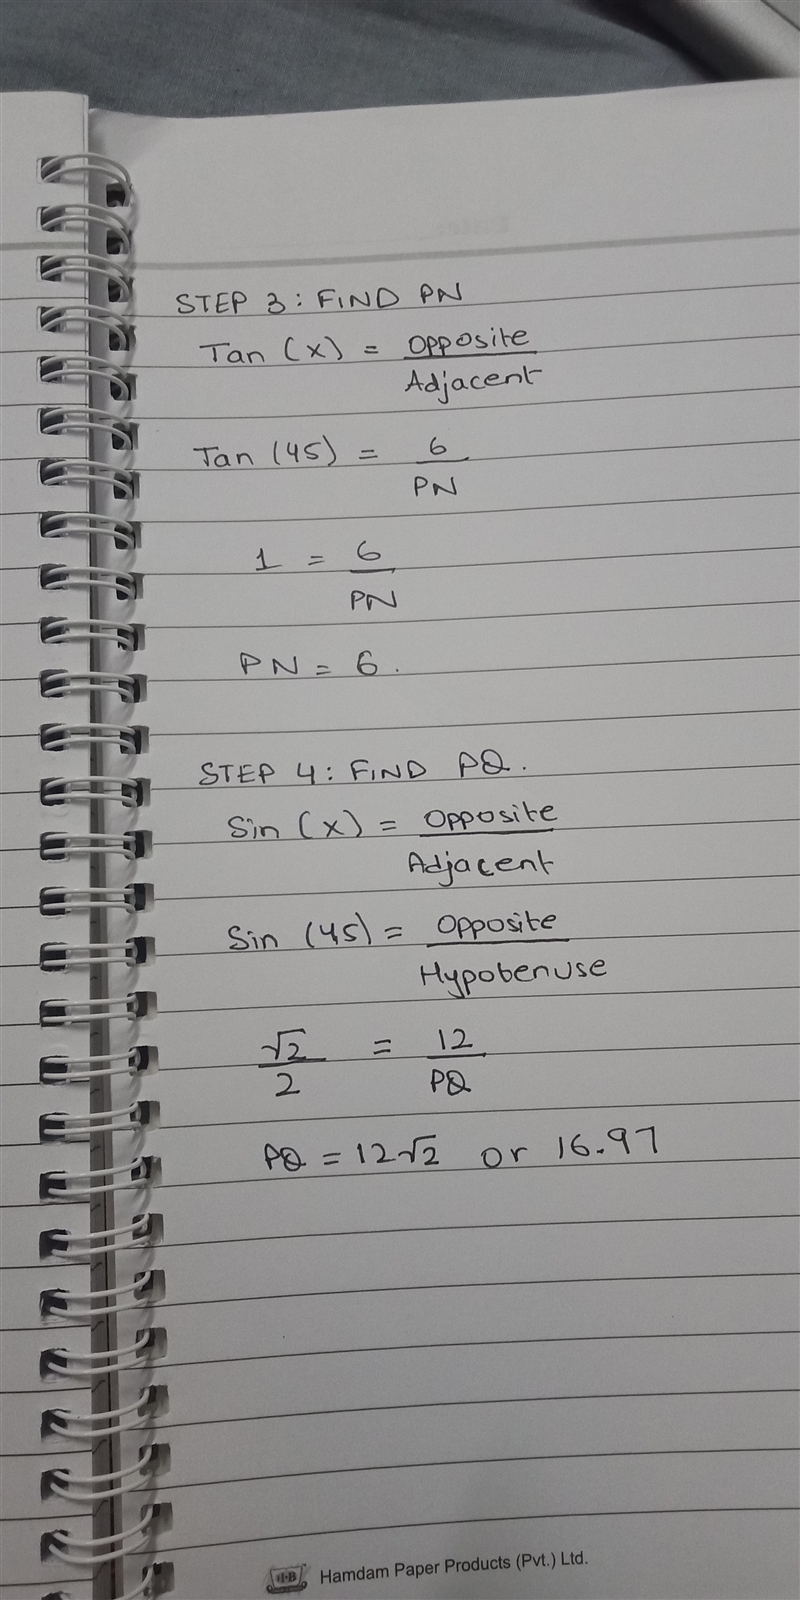 STEP 3: FIND PN
Tan (x) = Opposite / Adjacent
Tan (45) = 6 / PN
1 = 6 / PN
PN = 6.
STEP 4: FIND PQ.
Sin (x) = Opposite / Adjacent
Sin (45) = Opposite / Hypotenuse
√2 / 2 = 12 / PQ
PQ = 12√2 or 16.97
HB Hamdam Paper Products (Pvt.) Ltd.